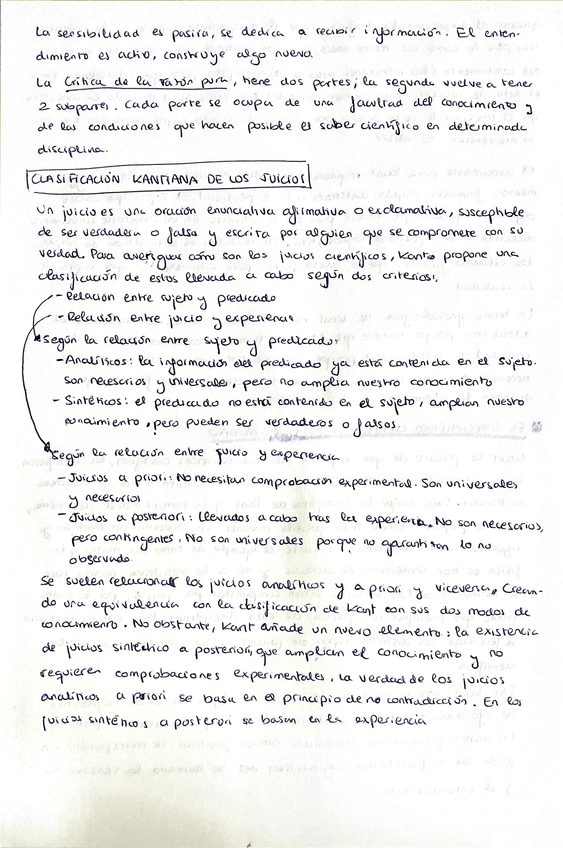 La sensibilidad es pasiva, se dedica a recibir información. El enten-
dimiento es activo, construye algo nuevo.
La Crítica de la razón pura, tiene dos partes; la segunda vuelve a tener
2 subpartes. Cada parte se ocupa de una facultad del conocimiento y
de las condiciones que hacen posible el saber científico en determinada
disciplina.
CLASIFICACIÓN KANTIANA DE LOS JUICIOS
Un juicio es una oración enunciativa afirmativa o exclamativa, susceptible
de ser verdadera o falsa y escrita por alguien que se compromete con su
verdad. Para averiguar cómo son los juicios científicos, Kant propone una
clasificación de estos llevada a cabo según dos criterios:
- Relación entre sujeto y predicado
- Relación entre juicio y experiencia
Según la relación entre sujeto y predicado:
- Analíticos: la información del predicado ya está contenida en el sujeto.
Son necesrios y universales, pero no amplia nuestro conocimiento
- Sintéticos: el predicado no está contenido en el sujeto, amplian nuestro
conocimiento, pero pueden ser verdaderos o falsos.
Según la relación entre juicio y experiencia
- Juicios a priori: No necesitan comprobación experimental. Son universales
y necesarios
- Juicios a posteriori: llevados a cabo tras la experiencia. No son necesarios,
pero contingentes. No son universales porque no garantizan lo no
observado.
Se suelen relacionar los juicios analíticos y a priori y viceversa, Crean-
do una equivalencia con la clasificación de Kant con sus dos modos de
conocimiento. No obstante, Kant añade un nuevo elemento: la existencia
de juicios sintéticos a posteriori, que amplian el conocimiento y no
requieren comprobaciones experimentales. La verdad de los juicios
analíticos a priori se basa en el principio de no contradicción. En los
juicios sintéticos a posteriori se basan en la experiencia